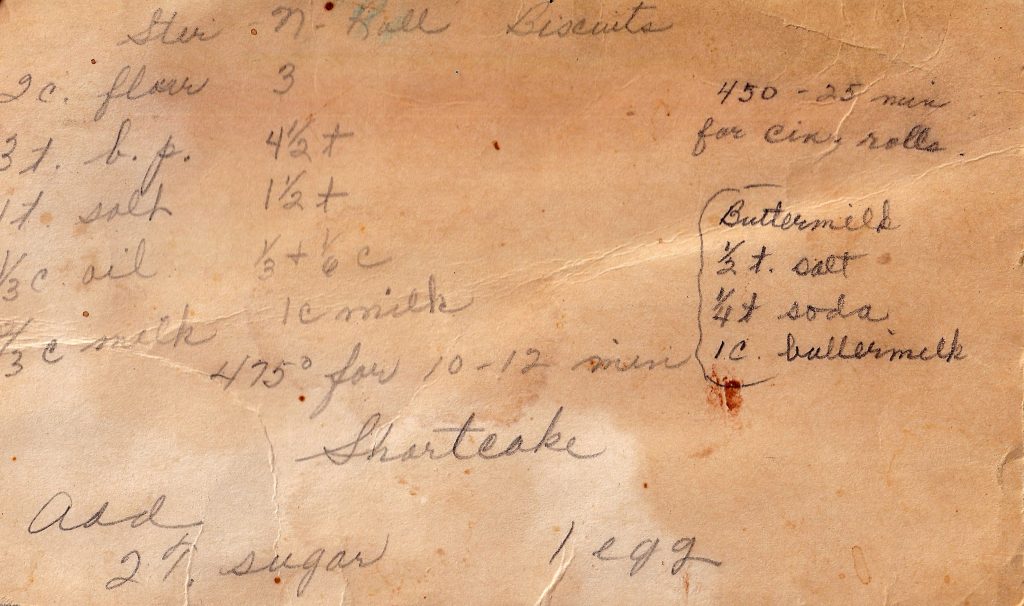 Stir - N - Roll Biscuits
2 c. flour 3
3 t. b. p. 4 1/2 t
1 t. salt 1 1/2 t
1/3 c oil 1/3 + 1/6 c
2/3 c milk 1 c milk
475° for 10-12 min
450 - 25 min
for cin. rolls
Buttermilk
1/2 t. salt
1/4 t soda
1 c. buttermilk
Shortcake
Add
2 T. sugar 1 egg